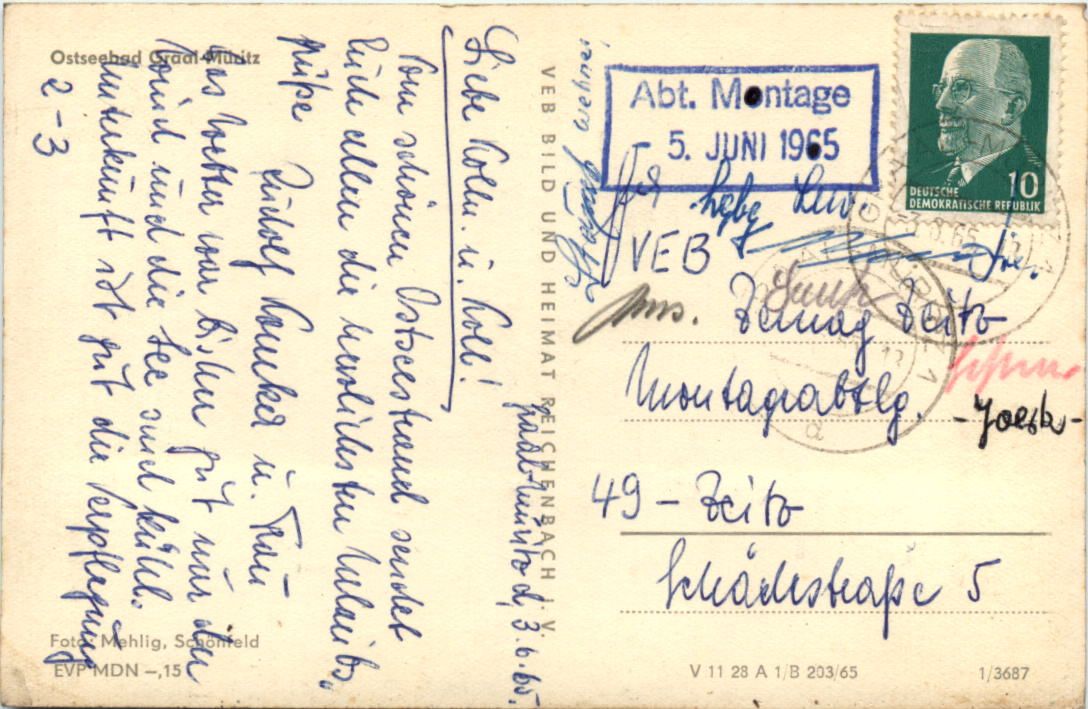 Ostseebad Graal-Müritz
Graal-Müritz d, 3.6.65.
Liebe Kolln. u. Koll!
Vom schönen Ostseestrand sendet
Euch allen die herzlichsten Urlaubs-
grüße
Rudolf u. Frau
Das Wetter war bisher gut nur der
Wind und die See sind kühl.
Unterkunft ist gut die Verpflegung
2-3
Foto: Mehlig, Schönfeld
EVP MDN -,15
VEB BILD UND HEIMAT REICHENBACH I. V.
Abt. Montage
5. JUNI 1965
DEUTSCHE
DEMOKRATISCHE REPUBLIK
10
VEB
Zemag Zeitz
Montageabtlg.
49 - Zeitz
Schädestraße 5
V 11 28 A 1/B 203/65
1/3687